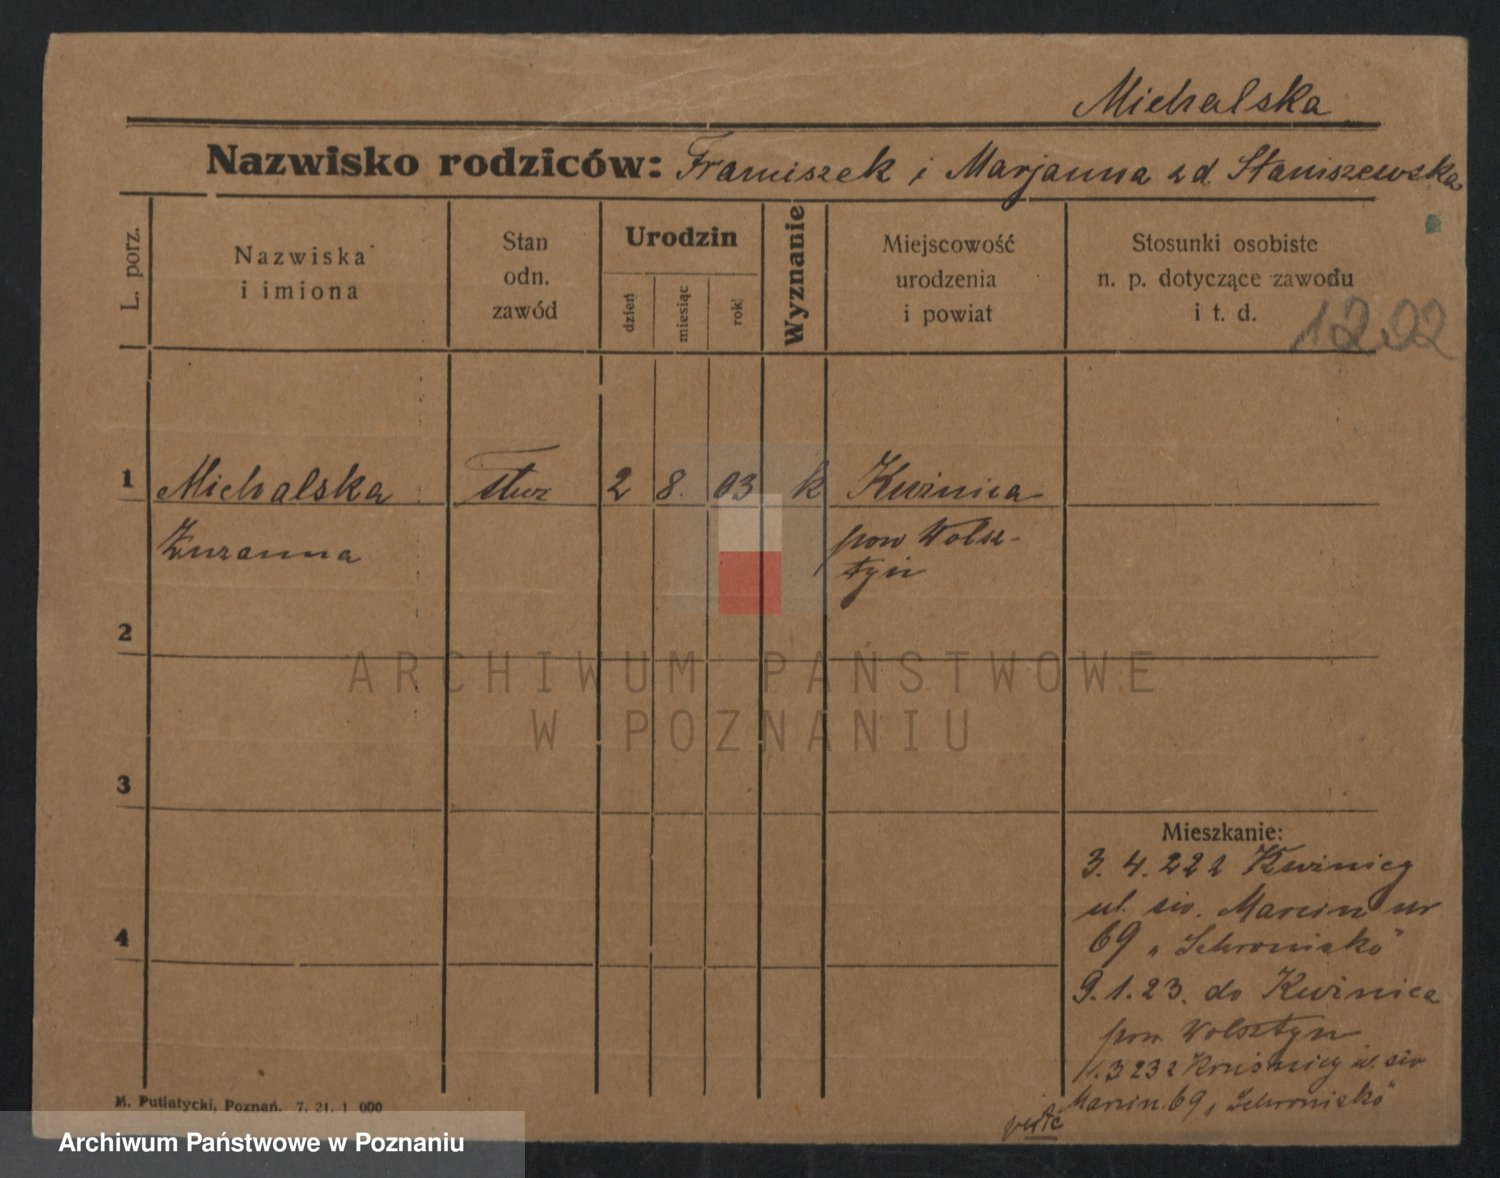 Michalska
Nazwisko rodziców: Franciszek i Marjanna zd. Staniszewska
L. porz.
Nazwiska i imiona
Stan odn. zawód
Urodzin
dzień
miesiąc
rok
Wyznanie
Miejscowość urodzenia i powiat
Stosunki osobiste n. p. dotyczące zawodu i t. d.
1202
1 Michalska służ 2 8. 03 k Kuźnica
Zuzanna pow Wolsz-
tyn
2
3
4
Mieszkanie:
3. 4. 22 z Kuźnicy
ul. św. Marcin nr
69 „Schronisko"
9. 1. 23. do Kuźnica
pow Wolsztyn
1. 3 23 z Kuźnicy ul. św
Marcin 69 „Schronisko"
M. Putiatycki, Poznań. 7. 21. 1 000
ARCHIWUM PAŃSTWOWE
W POZNANIU
Archiwum Państwowe w Poznaniu